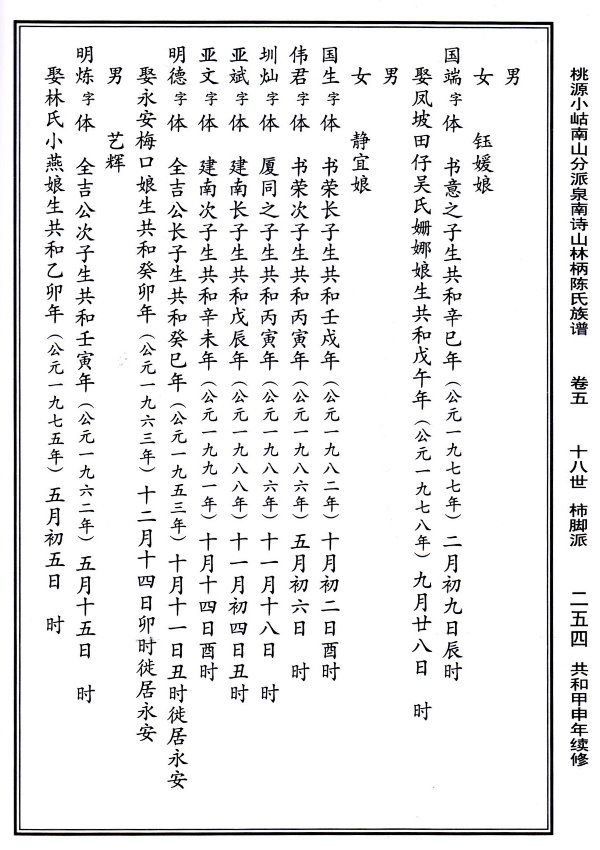 桃源小岵南山分派泉南诗山林柄陈氏族谱 卷五 十八世 柿脚派 二五四 共和甲申年续修
男
女 钰媛娘
国端字体 书意之子生共和辛巳年（公元一九七七年）二月初九日辰时
娶凤坡田仔吴氏姗娜娘生共和戊午年（公元一九七八年）九月廿八日 时
男
女 静宜娘
国生字体 书荣长子生共和壬戌年（公元一九八二年）十月初二日酉时
伟君字体 书荣次子生共和丙寅年（公元一九八六年）五月初六日 时
圳灿字体 厦同之子生共和丙寅年（公元一九八六年）十一月十八日 时
亚斌字体 建南长子生共和戊辰年（公元一九八八年）十一月初四日丑时
亚文字体 建南次子生共和辛未年（公元一九九一年）十月十四日酉时
明德字体 全吉公长子生共和癸巳年（公元一九五三年）十月十一日丑时徙居永安
娶永安梅口娘生共和癸卯年（公元一九六三年）十二月十四日卯时徙居永安
男 艺辉
明炼字体 全吉公次子生共和壬寅年（公元一九六二年）五月十五日 时
娶林氏小燕娘生共和乙卯年（公元一九七五年）五月初五日 时